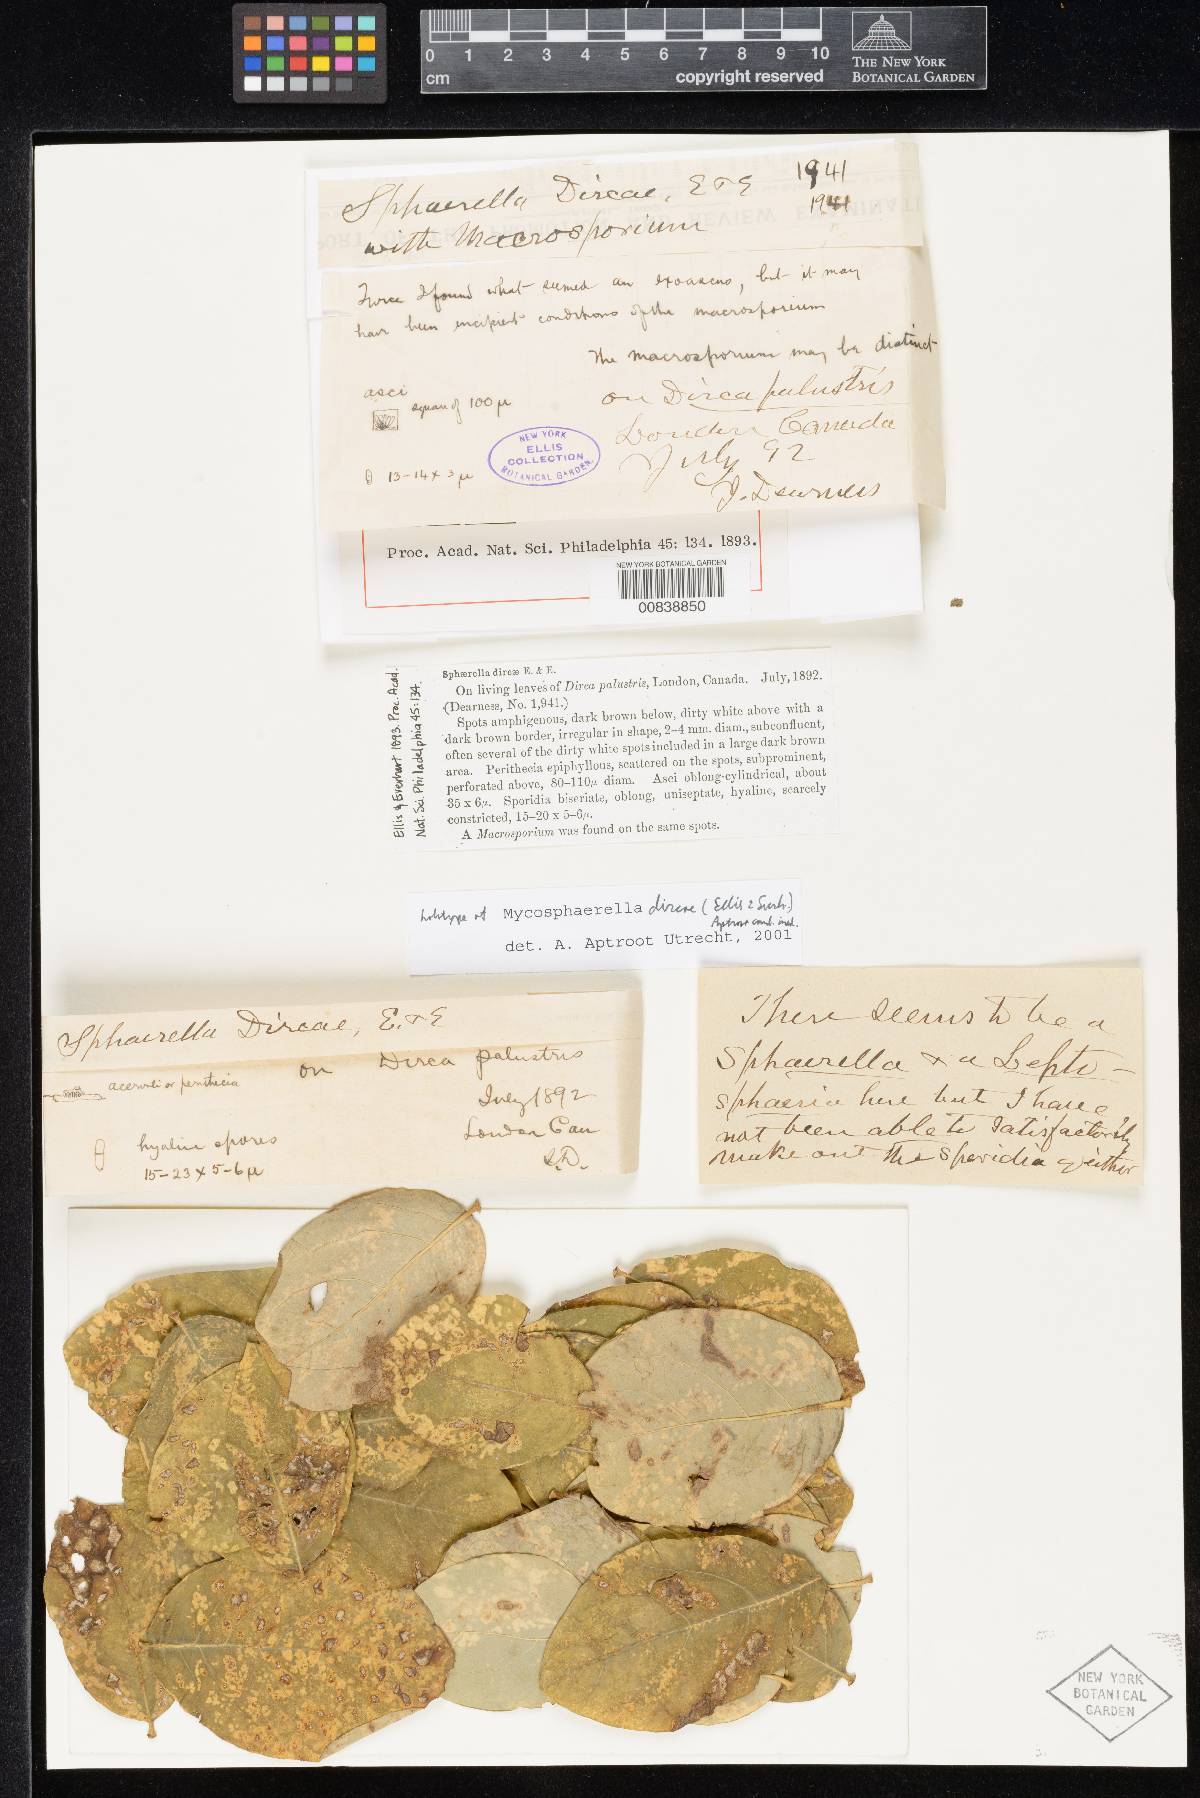 0 1 2 3 4 5 6 7 8 9 10
cm
copyright reserved
THE NEW YORK
BOTANICAL GARDEN
Sphaerella Dircae, E & E
1941
1941
with Macrosporium
Twice I found what seemed an exoascus, but it may
have been incipient conditions of the macrosporium
The macrosporium may be distinct
on Dirca palustris
London Canada
July 92
J. Dearness
asci
square of 100 µ
13-14 x 3 µ
NEW YORK
ELLIS
COLLECTION
BOTANICAL GARDEN.
Proc. Acad. Nat. Sci. Philadelphia 45: 134. 1893.
NEW YORK BOTANICAL GARDEN
00838850
Ellis & Everhart 1893. Proc. Acad.
Nat. Sci. Philadelphia 45:134.
Sphærella dircæ E. & E.
On living leaves of Dirca palustris, London, Canada. July, 1892.
(Dearness, No. 1,941.)
Spots amphigenous, dark brown below, dirty white above with a
dark brown border, irregular in shape, 2-4 mm. diam., subconfluent,
often several of the dirty white spots included in a large dark brown
area. Perithecia epiphyllous, scattered on the spots, subprominent,
perforated above, 80-110µ diam. Asci oblong-cylindrical, about
35 x 6µ. Sporidia biseriate, oblong, uniseptate, hyaline, scarcely
constricted, 15-20 x 5-6µ.
A Macrosporium was found on the same spots.
holotype of Mycosphaerella dircae (Ellis & Everh.)
Aptroot comb. ined.
det. A. Aptroot Utrecht, 2001
Sphaerella Dircae, E. & E
on Dirca palustris
acervuli or perithecia
July 1892
London Can
J.D.
hyaline spores
15-23 x 5-6 µ
There seems to be a
Sphaerella & a Lepto-
sphaeria here but I have
not been able to satisfactorily
make out the sporidia of either
NEW YORK
BOTANICAL
GARDEN